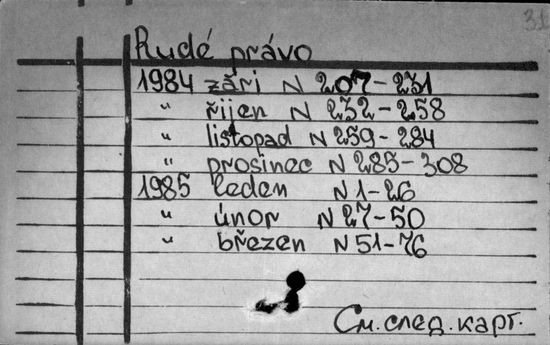 31
Rudé právo
1984 září N 207-231
" říjen N 232-258
" listopad N 259-284
" prosinec N 285-308
1985 leden N 1-26
" únor N 27-50
" březen N 51-76
См. след. карт.